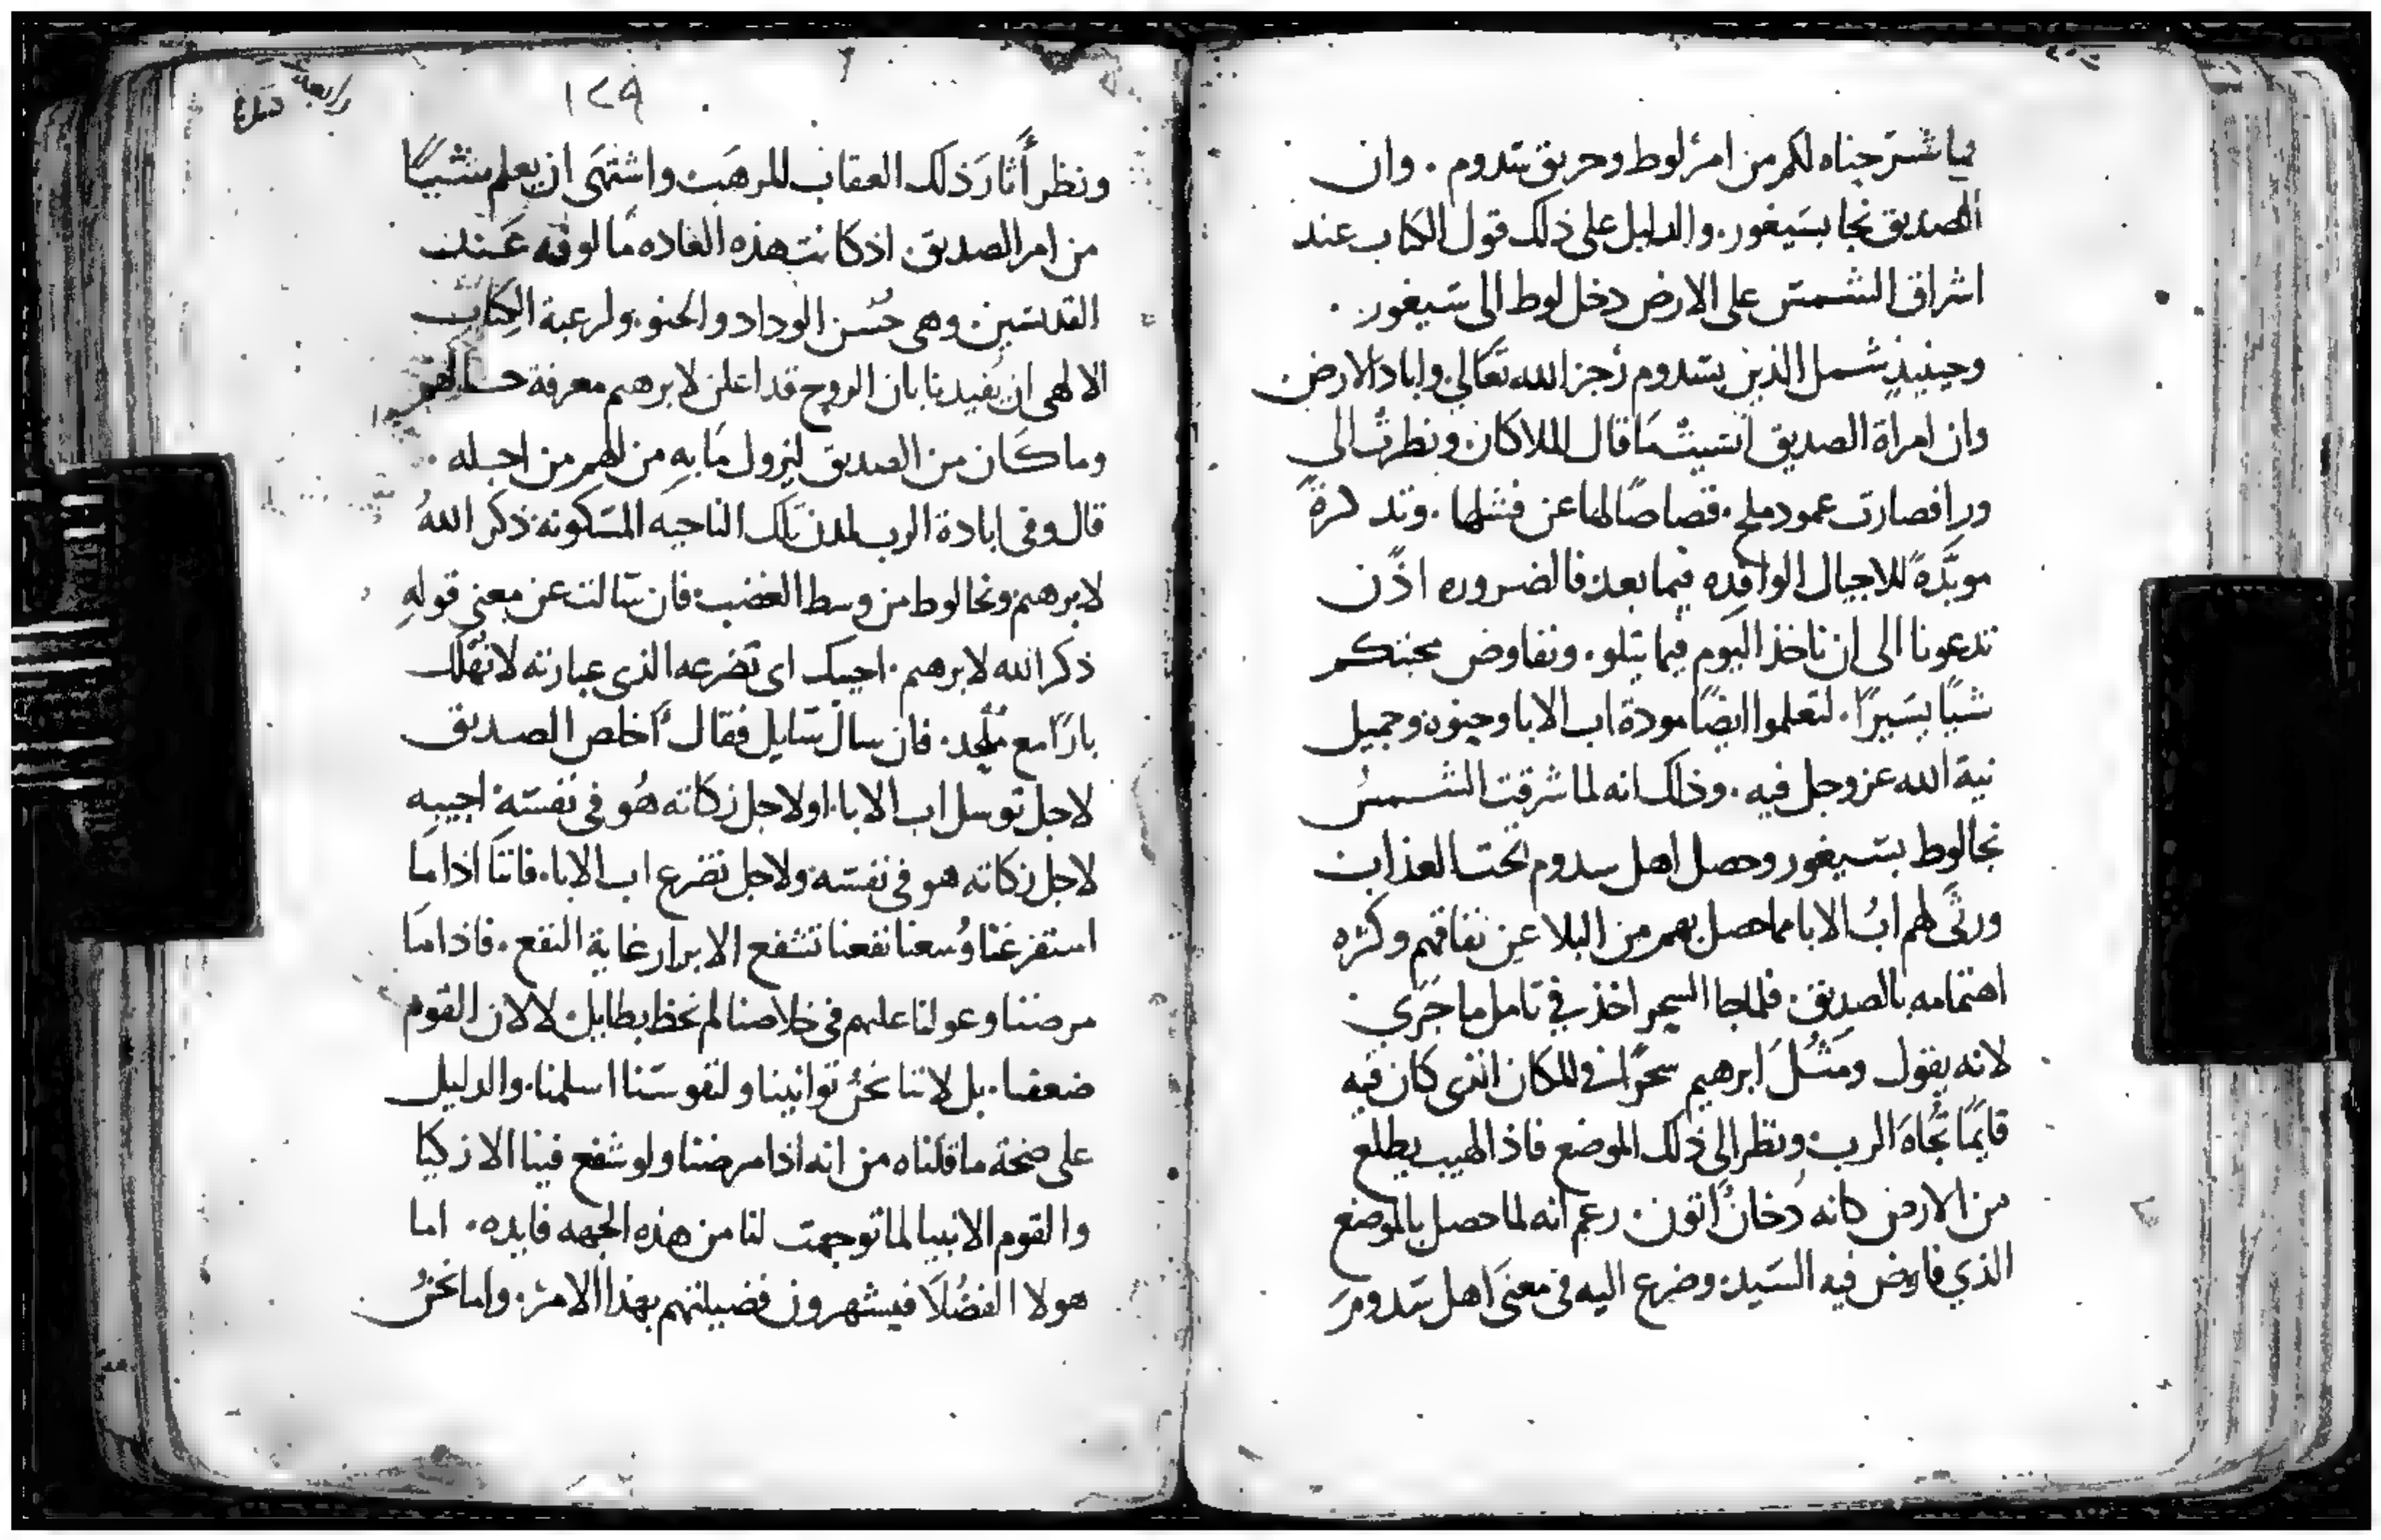 فيما شرحناه لكم من امر لوط وحريق سدوم . وان
الصديق نجا بسيغور . والدليل على ذلك قول الكتاب عند
اشراق الشمس على الارض دخل لوط الى سيغور .
وحينيذٍ شمل الذين بسدوم رجز الله تعالي واباد الارض
وان امراة الصديق انسيت ما قال الملاكان ونظرت الي
ورا فصارت عمود ملح . قصاصًا لها عن فشلها . وتذكرةً
موبّدةً للاجيال الوافده فيما بعد فالضروره اذن
تدعونا الى ان ناخذ اليوم فيما يتلو . ونفاوض محبتكم
شيًا يسيرًا . لتعلموا ايضًا مودة اب الابا وحنوه وجميل
نية الله عز وجل فيه . وذلك انه لما شرقت الشمس
نجا لوط بسيغور وحصل اهل سدوم تحت العذاب
ورثى لهم ابُ الابا مما حصل بهم من البلا عن نفاقهم وكثره
اهتمامه بالصديق . فلما جا السحر اخذ في تامل ما جري
لانه يقول ومَثُلَ ابرهيم سحرًا في المكان الذى كان فيه
قايمًا تُجاه الرب ونظر الى ذلك الموضع فاذا لهيب يطلع
من الارض كانه دُخان اتون . زعم انه لما حصل بالموضع
الذي فاوض فيه السيد وضرع اليه فى معنى اهل سدوم
١٢٩
ونظر أثار ذلك العقاب المرهب واشتهى ان يعلم شيًا
من امر الصديق . اذ كانت هذه العاده مالوفه عند
القديسين . وهى حُسن الوداد والحنو . ولرغبة الكتاب
الالهى ان يُفيدنا بان الروح قد اعلن لابرهيم معرفة
وما كان من الصديق ليزول ما به من الهم من اجله .
قال وفى ابادة الرب لمدن تلك الناحيه المسكونه ذكر اللهُ
لابرهيم ونجا لوط من وسط الغضب فان سالت عن معنى قوله
ذكر الله لابرهيم . اجيبك اى تضرعه الذى عبارته لا تهلك
بارًا مع مُلحد . فان سال سايل فقال أخلص الصديق
لاجل توسل اب الابا . او لاجل زكاته هُو فى نفسه . اجيبه
لاجل زكاته هو فى نفسه ولاجل تضرع اب الابا . فاننا اذا ما
استفرغنا وُسعنا نفعنا تشفع الابرار غاية النفع . فاذا ما
مرضنا وعولنا عليهم فى خلاصنا لم نحظ بطايل . لا لان القوم
ضعفا . بل لاننا نحن توانينا ولنفوسنا اسلمنا . والدليل
على صحة ما قلناه من انه اذا مرضنا ولو شفع فينا الازكيا
والقوم الانبيا لما توجهت لنا من هذه الجهه فايده . اما
هولا الفضُلا فيشهرون فضيلتهم بهذا الامر . واما نحنُ